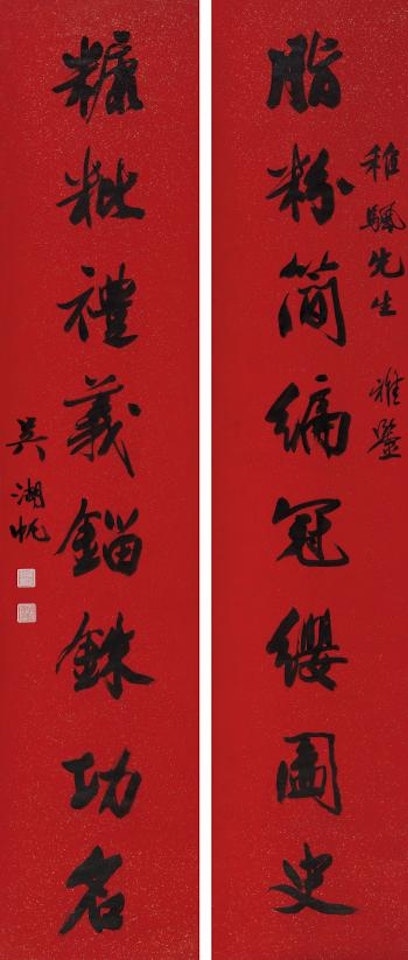 稚颿先生 雅鑒
脂粉簡編冠纓圖史
糠粃禮義錙銖功名
吳湖帆